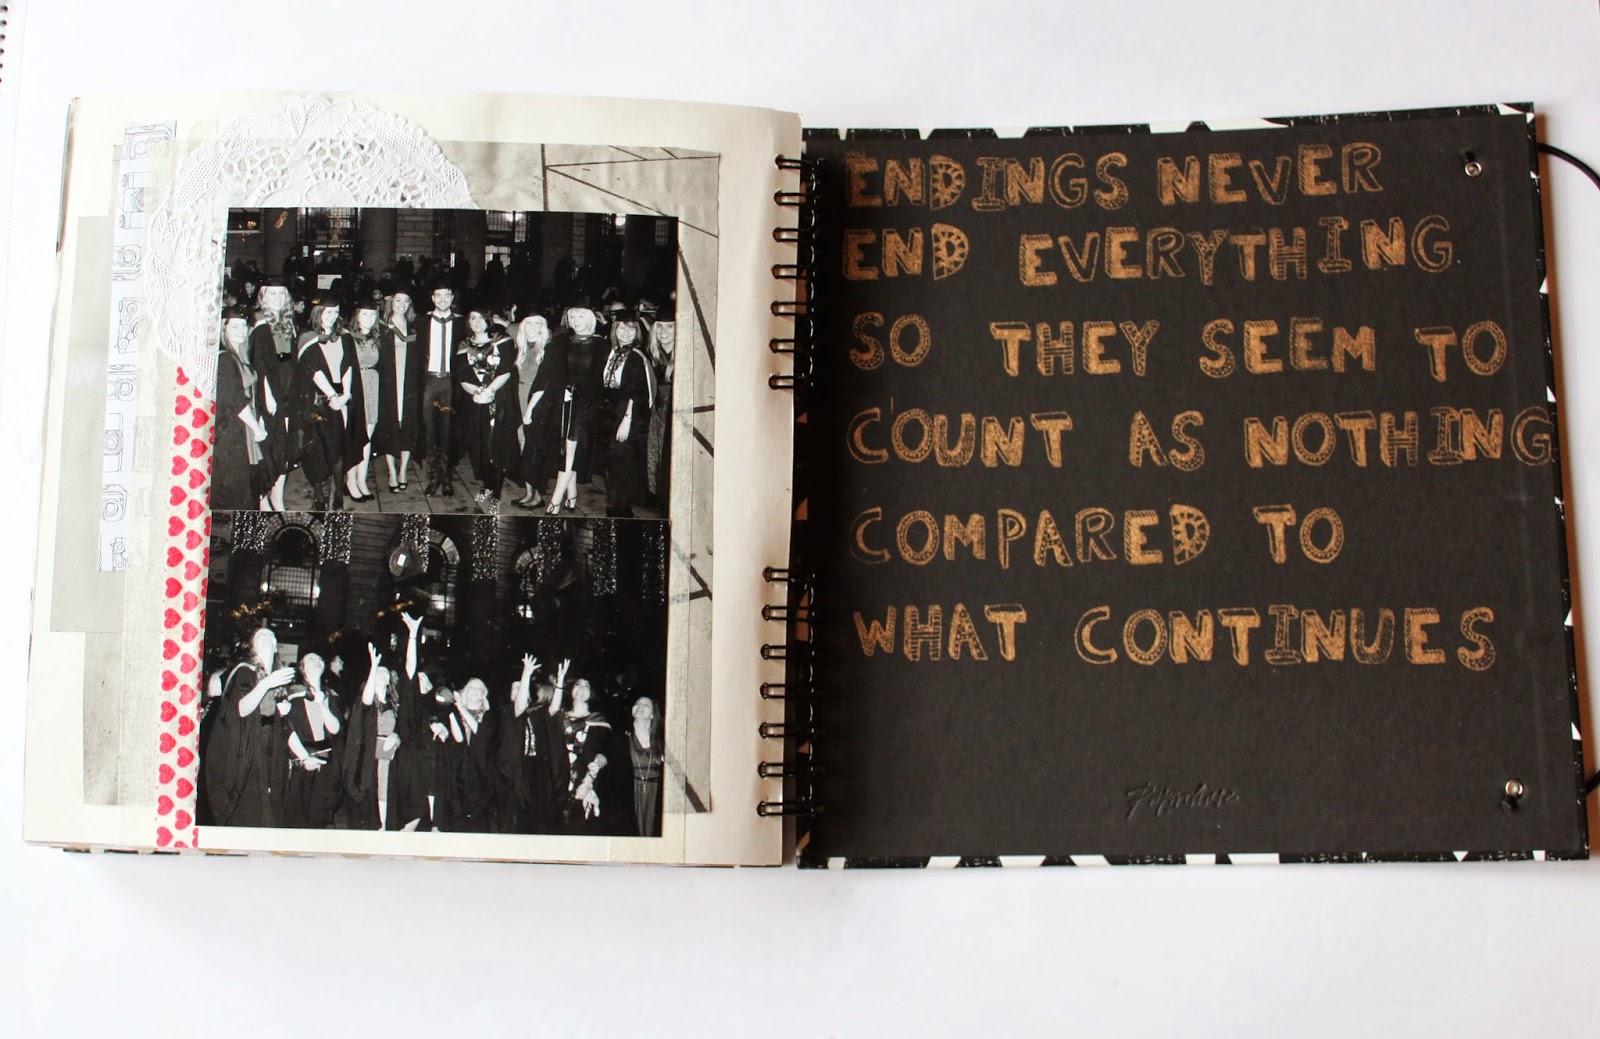 ENDINGS NEVER
END EVERYTHING
SO THEY SEEM TO
COUNT AS NOTHING
COMPARED TO
WHAT CONTINUES
Paperchase